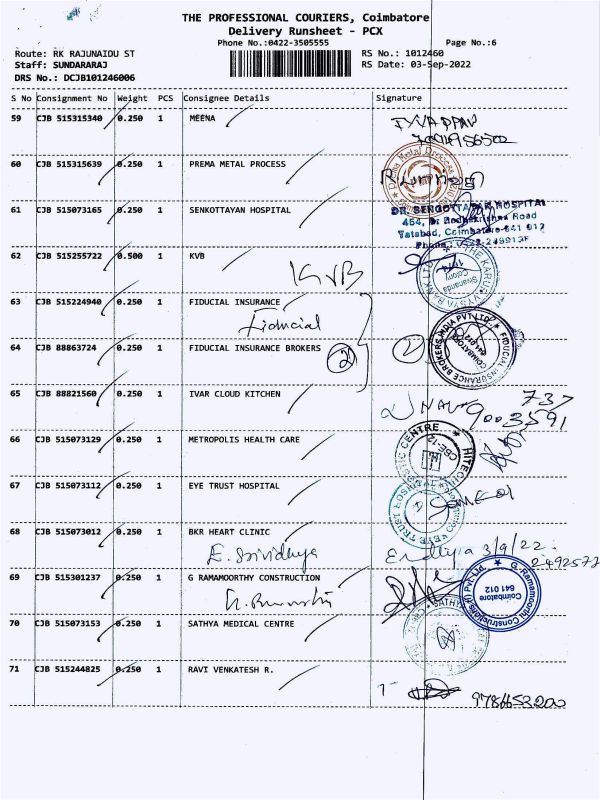 THE PROFESSIONAL COURIERS, Coimbatore
Delivery Runsheet - PCX
Phone No.:0422-3505555 Page No.:6
Route: RK RAJUNAIDU ST RS No.: 1012460
Staff: SUNDARARAJ RS Date: 03-Sep-2022
DRS No.: DCJB101246006
S No Consignment No Weight PCS Consignee Details Signature
59 CJB 515315340 0.250 1 MEENA
60 CJB 515315639 0.250 1 PREMA METAL PROCESS
61 CJB 515073165 0.250 1 SENKOTTAYAN HOSPITAL
DR. SENGOTTAYAN HOSPITAL
454, Dr Radhakrishna Road
Tatabad, Coimbatore-641 012
62 CJB 515255722 0.500 1 KVB
KVB
63 CJB 515224940 0.250 1 FIDUCIAL INSURANCE
Fiducial
64 CJB 88863724 0.250 1 FIDUCIAL INSURANCE BROKERS 2
FIDUCIAL INSURANCE BROKERS INDIA PVT LTD.
COIMBATORE
65 CJB 88821560 0.250 1 IVAR CLOUD KITCHEN
737
9003591
66 CJB 515073129 0.250 1 METROPOLIS HEALTH CARE
67 CJB 515073112 0.250 1 EYE TRUST HOSPITAL
EYE TRUST HOSPITAL
68 CJB 515073012 0.250 1 BKR HEART CLINIC
E. Srividhya 3/9/22
2492577
69 CJB 515301237 0.250 1 G RAMAMOORTHY CONSTRUCTION
G. Ramamoorthi Constructions (I) Pvt Ltd.
Coimbatore
641 012
70 CJB 515073153 0.250 1 SATHYA MEDICAL CENTRE
71 CJB 515244825 0.250 1 RAVI VENKATESH R.